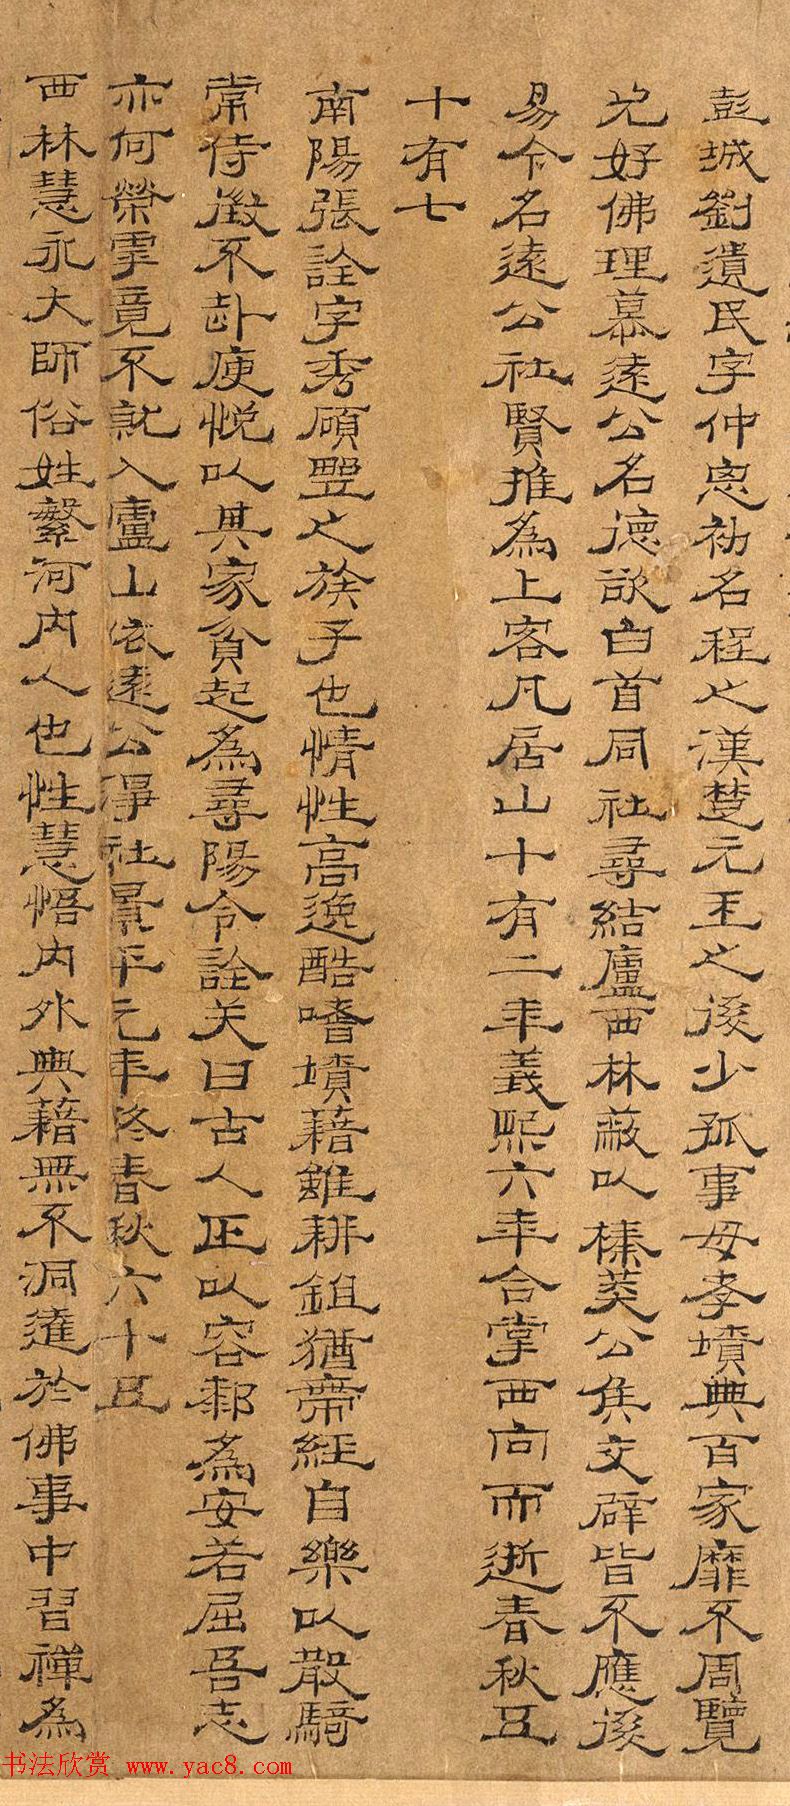 彭城劉遺民字仲思初名程之漢楚元王之後少孤事母孝墳典百家靡不周覽
尤好佛理慕遠公名德欲白首同社尋結廬西林蔽以榛莽公侯交辟皆不應後
易今名遠公社賢推為上客凡居山十有二年義熙六年合掌西向而逝春秋五
十有七
南陽張詮字秀碩野之族子也情性高逸酷嗜墳藉雖耕鉏猶帶經自樂以散騎
常侍徵不赴庾悅以其家貧起為尋陽令詮关曰古人正以容膝為安若屈吾志
亦何榮乎竟不就入廬山依遠公淨社景平元年終春秋六十五
西林慧永大師俗姓繁河內人也性慧悟內外典藉無不洞達於佛事中習禪為
书法欣赏 www.yac8.com